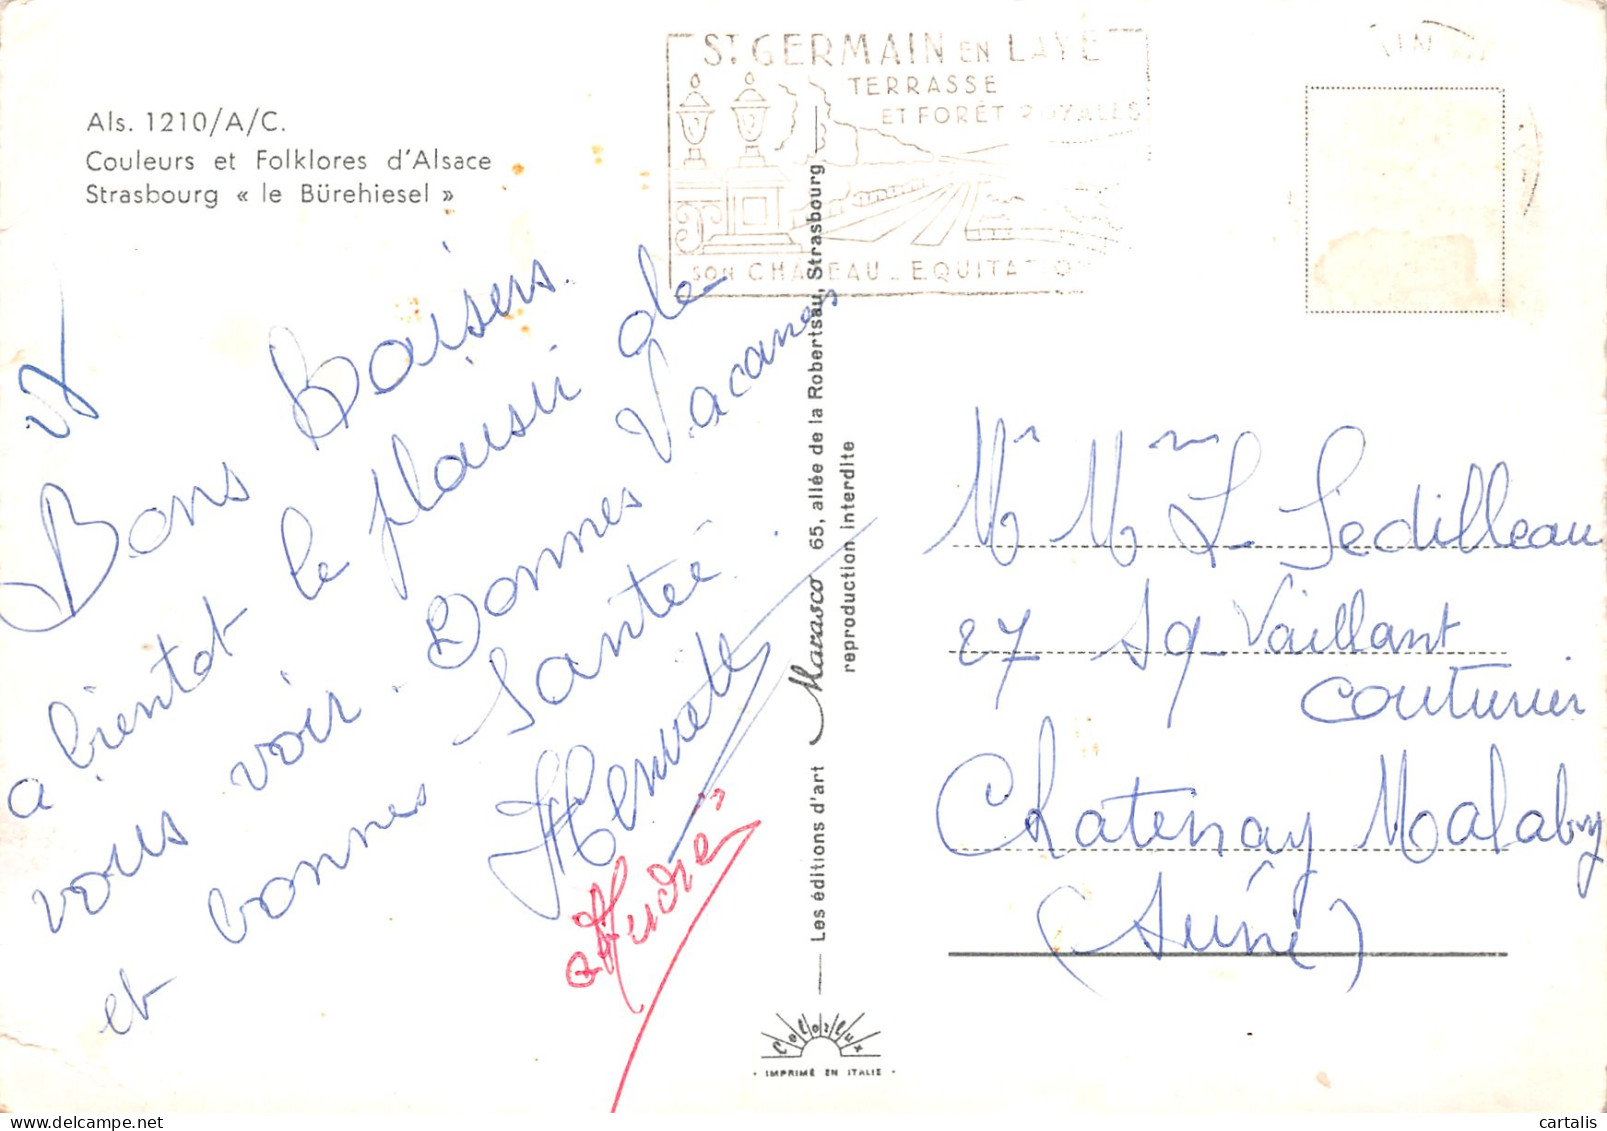 Als. 1210/A/C.
Couleurs et Folklores d'Alsace
Strasbourg « le Bürehiesel »
ST GERMAIN EN LAYE
TERRASSE
ET FORÊT ROYALES
SON CHATEAU _ EQUITATION
Bons Baisers.
a bientot le plaisir de
vous voir. Bonnes Vacances
et bonnes Santée.
Henriette
André
Les éditions d'art Marasco 65, allée de la Robertsau, Strasbourg
reproduction interdite
Colorlux
· IMPRIMÉ EN ITALIE ·
Mr Mme L Sedilleau
27 Sq Vaillant
couturier
Chatenay Malabry
(Seine)
cartalis